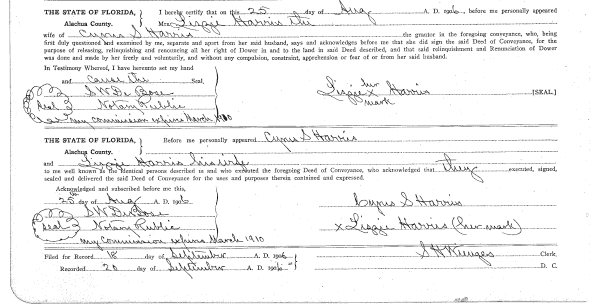 THE STATE OF FLORIDA, I hereby certify that on this 25 day of Aug A. D. 1906, before me personally appeared
Alachua County. Mrs Lizzie Harris the
wife of Cyrus S Harris the grantor in the foregoing conveyance, who, being
first duly questioned and examined by me, separate and apart from her said husband, says and acknowledges before me that she did sign the said Deed of Conveyance, for the
purpose of releasing, relinquishing and renouncing all her right of Dower in and to the land in said Deed described, and that said relinquishment and Renunciation of Dower
was done and made by her freely and voluntarily, and without any compulsion, constraint, apprehension or fear of or from her said husband.
In Testimony Whereof, I have hereunto set my hand
and cause the Seal, her
seal S W DuBose Lizzie x Harris [SEAL.]
Notary Public mark
my commission expires March 1910
THE STATE OF FLORIDA, Before me personally appeared Cyrus S Harris
Alachua County.
and Lizzie Harris his wife
to me well known as the identical persons described in and who executed the foregoing Deed of Conveyance, who acknowledged that they executed, signed,
sealed and delivered the said Deed of Conveyance for the uses and purposes therein contained and expressed.
Acknowledged and subscribed before me this,
25th day of Aug A. D. 1906 Cyrus S Harris
seal S W DuBose
Notary Public x Lizzie Harris (her mark)
my Commission expires March 1910
Filed for Record 18 day of September A. D. 1906 Clerk,
Recorded 20 day of September A. D. 1906 D. C.